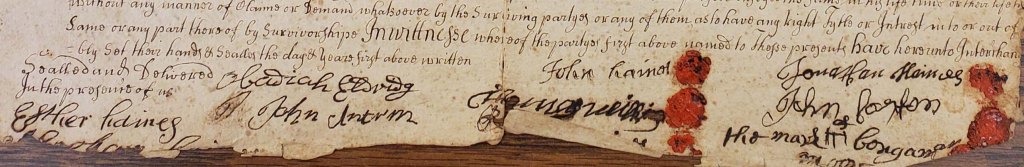 without any manner of Claime or Demand whatsoever by the Surviving partyes or any of them as to have any Right tytle or Intrest into or out of
Same or any part thereof by Survivorshipe In witnesse whereof the partyes first above named to these presents have hereunto Interchan
=bly Set their hands & Seales the day & Yeare first above written
Sealled and Delivered
In the presence of us
Obadiah Eldridg
John Haines
Jonathan Haines
Esther haines
John Antrm
John Paxton
the mark of